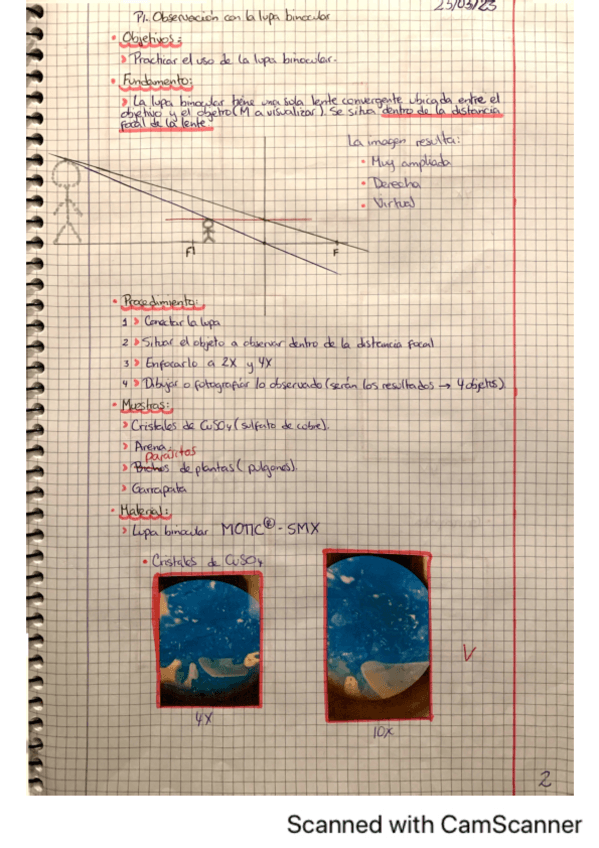 25/05/23
P1. Observación con la lupa binocular
• Objetivos:
> Practicar el uso de la lupa binocular.
• Fundamento:
> La lupa binocular tiene una sola lente convergente ubicada entre el
objetivo y el objetro (M a visualizar). Se situa dentro de la distancia
focal de la lente.
La imagen resulta:
• Muy ampliada
• Derecha
• Virtual
F' F
• Procedimiento:
1 > Conectar la lupa
2 > Situar el objeto a observar dentro de la distancia focal
3 > Enfocarlo a 2X y 4X
4 > Dibujar o fotografiar lo observado (serán los resultados → 4 objetos)
• Muestras:
> Cristales de CuSO4 (sulfato de cobre).
> Arena
parásitos
> Bichos de plantas (pulgones).
> Garrapata
• Material:
> Lupa binocular MOTIC®- SMX
• Cristales de CuSO4
V
4X
10X
2
Scanned with CamScanner